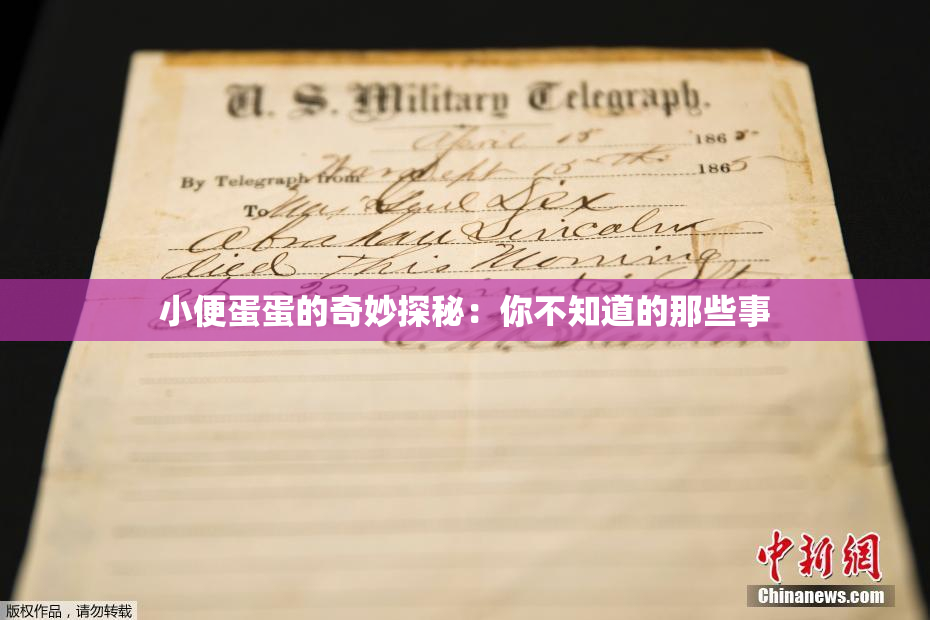 U. S. Military Telegraph.
April 15 1865
By Telegraph from War Dept 15th 1865
To Maj Genl Dix
Abraham Lincoln
died This Morning
at 22 minutes after
小便蛋蛋的奇妙探秘：你不知道的那些事
E. M. Stanton
中新网
Chinanews.com
版权作品，请勿转载